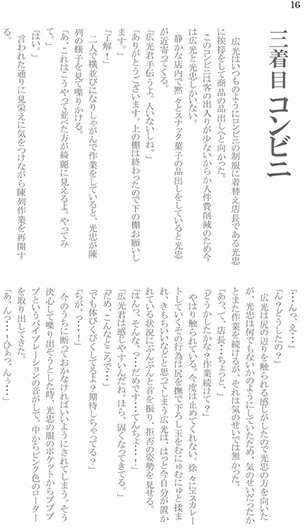 16
三着目 コンビニ
広光はいつものようにコンビニの制服に着替え店長である光忠
に挨拶をして商品の品出しへと向かった。
このコンビニは客の出入りが少ないからか人件費削減のため今
は広光と光忠しかいない。
静かな店内で黙々とスナック菓子の品出しをしていると光忠
が近寄ってくる。
「広光君手伝うよ。人いないしね。」
「ありがとうございます。上の棚は終わったので下の棚お願いし
ます。」
「了解！」
二人で横並びになりしゃがんで作業をしていると、光忠が陳
列の様子を見て喋りかける。
「あ、これはこうやって並べた方が綺麗に見えるよ。やってみ
て。」
「はい。」
言われた通りに見栄えに気をつけながら陳列作業を再開す
「…んっ、え…」
「んっ?どうしたの?」
広光は尻の辺りを触られる感じがしたので光忠の方を向いた
が、光忠は何でもないかのようにしていたため、気のせいだったか
とまた作業を続けるが、それは気のせいでは無かった。
「あっ、て、店長…ちょっと、」
「どうしたかな?作業続けて?」
やはり触られている。今度は止めてくれない。徐々にエスカレー
トしていくその行為は尻を撫で下ろし玉をむにゅむにゅと揉ま
れ、きもちいいなどと思ってしまう広光は、はっと今自分が置か
れている状況にぶんぶんと首を振り、拒否の姿勢を見せる。
「ばんっ、そんな、っ…だめです…てんちょ…！」
「広光君は感じやすいんだね。ほら、固くなってきてる。」
「だめ、こんなところで…」
「でも体びくびくしてるよ?期待しちゃってる?」
「ちが、っ…！」
今のうちに断っておかなければいいようにされてしまう。そう
決心して喋り出そうとした時、光忠の服のポケットからブブブ
ブというバイブレーションの音がして、中からピンク色のローター
を取り出してきた。
「あ、んっ……ひぁっ、んぅ…」